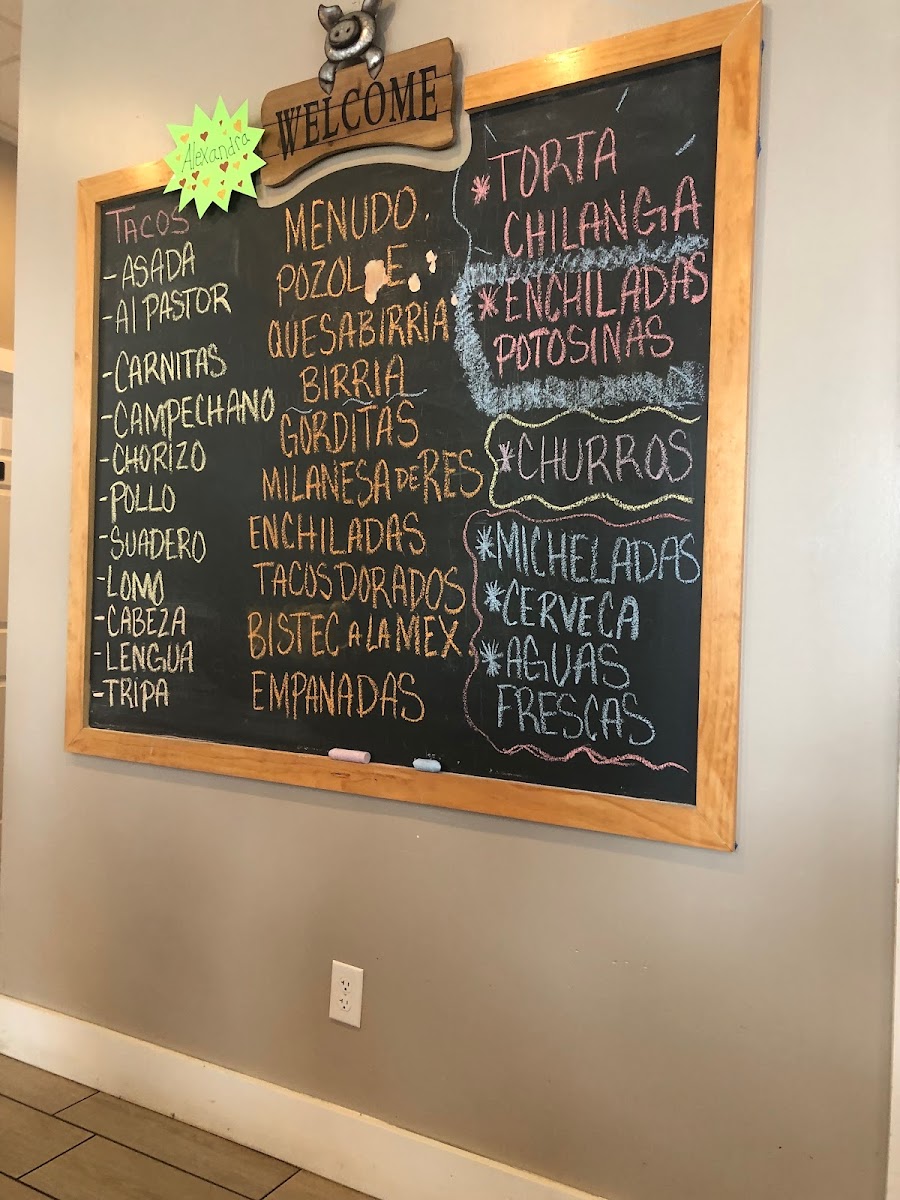 WELCOME
Alexandra
TACOS
-ASADA
-Al PASTOR
-CARNITAS
-CAMPECHANO
-CHORIZO
-POLLO
-SUADERO
-LOMO
-CABEZA
-LENGUA
-TRIPA
MENUDO.
POZOLE
QUESABIRRIA
BIRRIA
GORDITAS
MILANESA DE RES
ENCHILADAS
TACOS DORADOS
BISTEC A LA MEX.
EMPANADAS
*TORTA
CHILANGA
*ENCHILADAS
POTOSINAS
*CHURROS
*MICHELADAS
*CERVECA
*AGUAS
FRESCAS